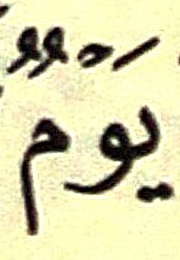 يَوْمٌ